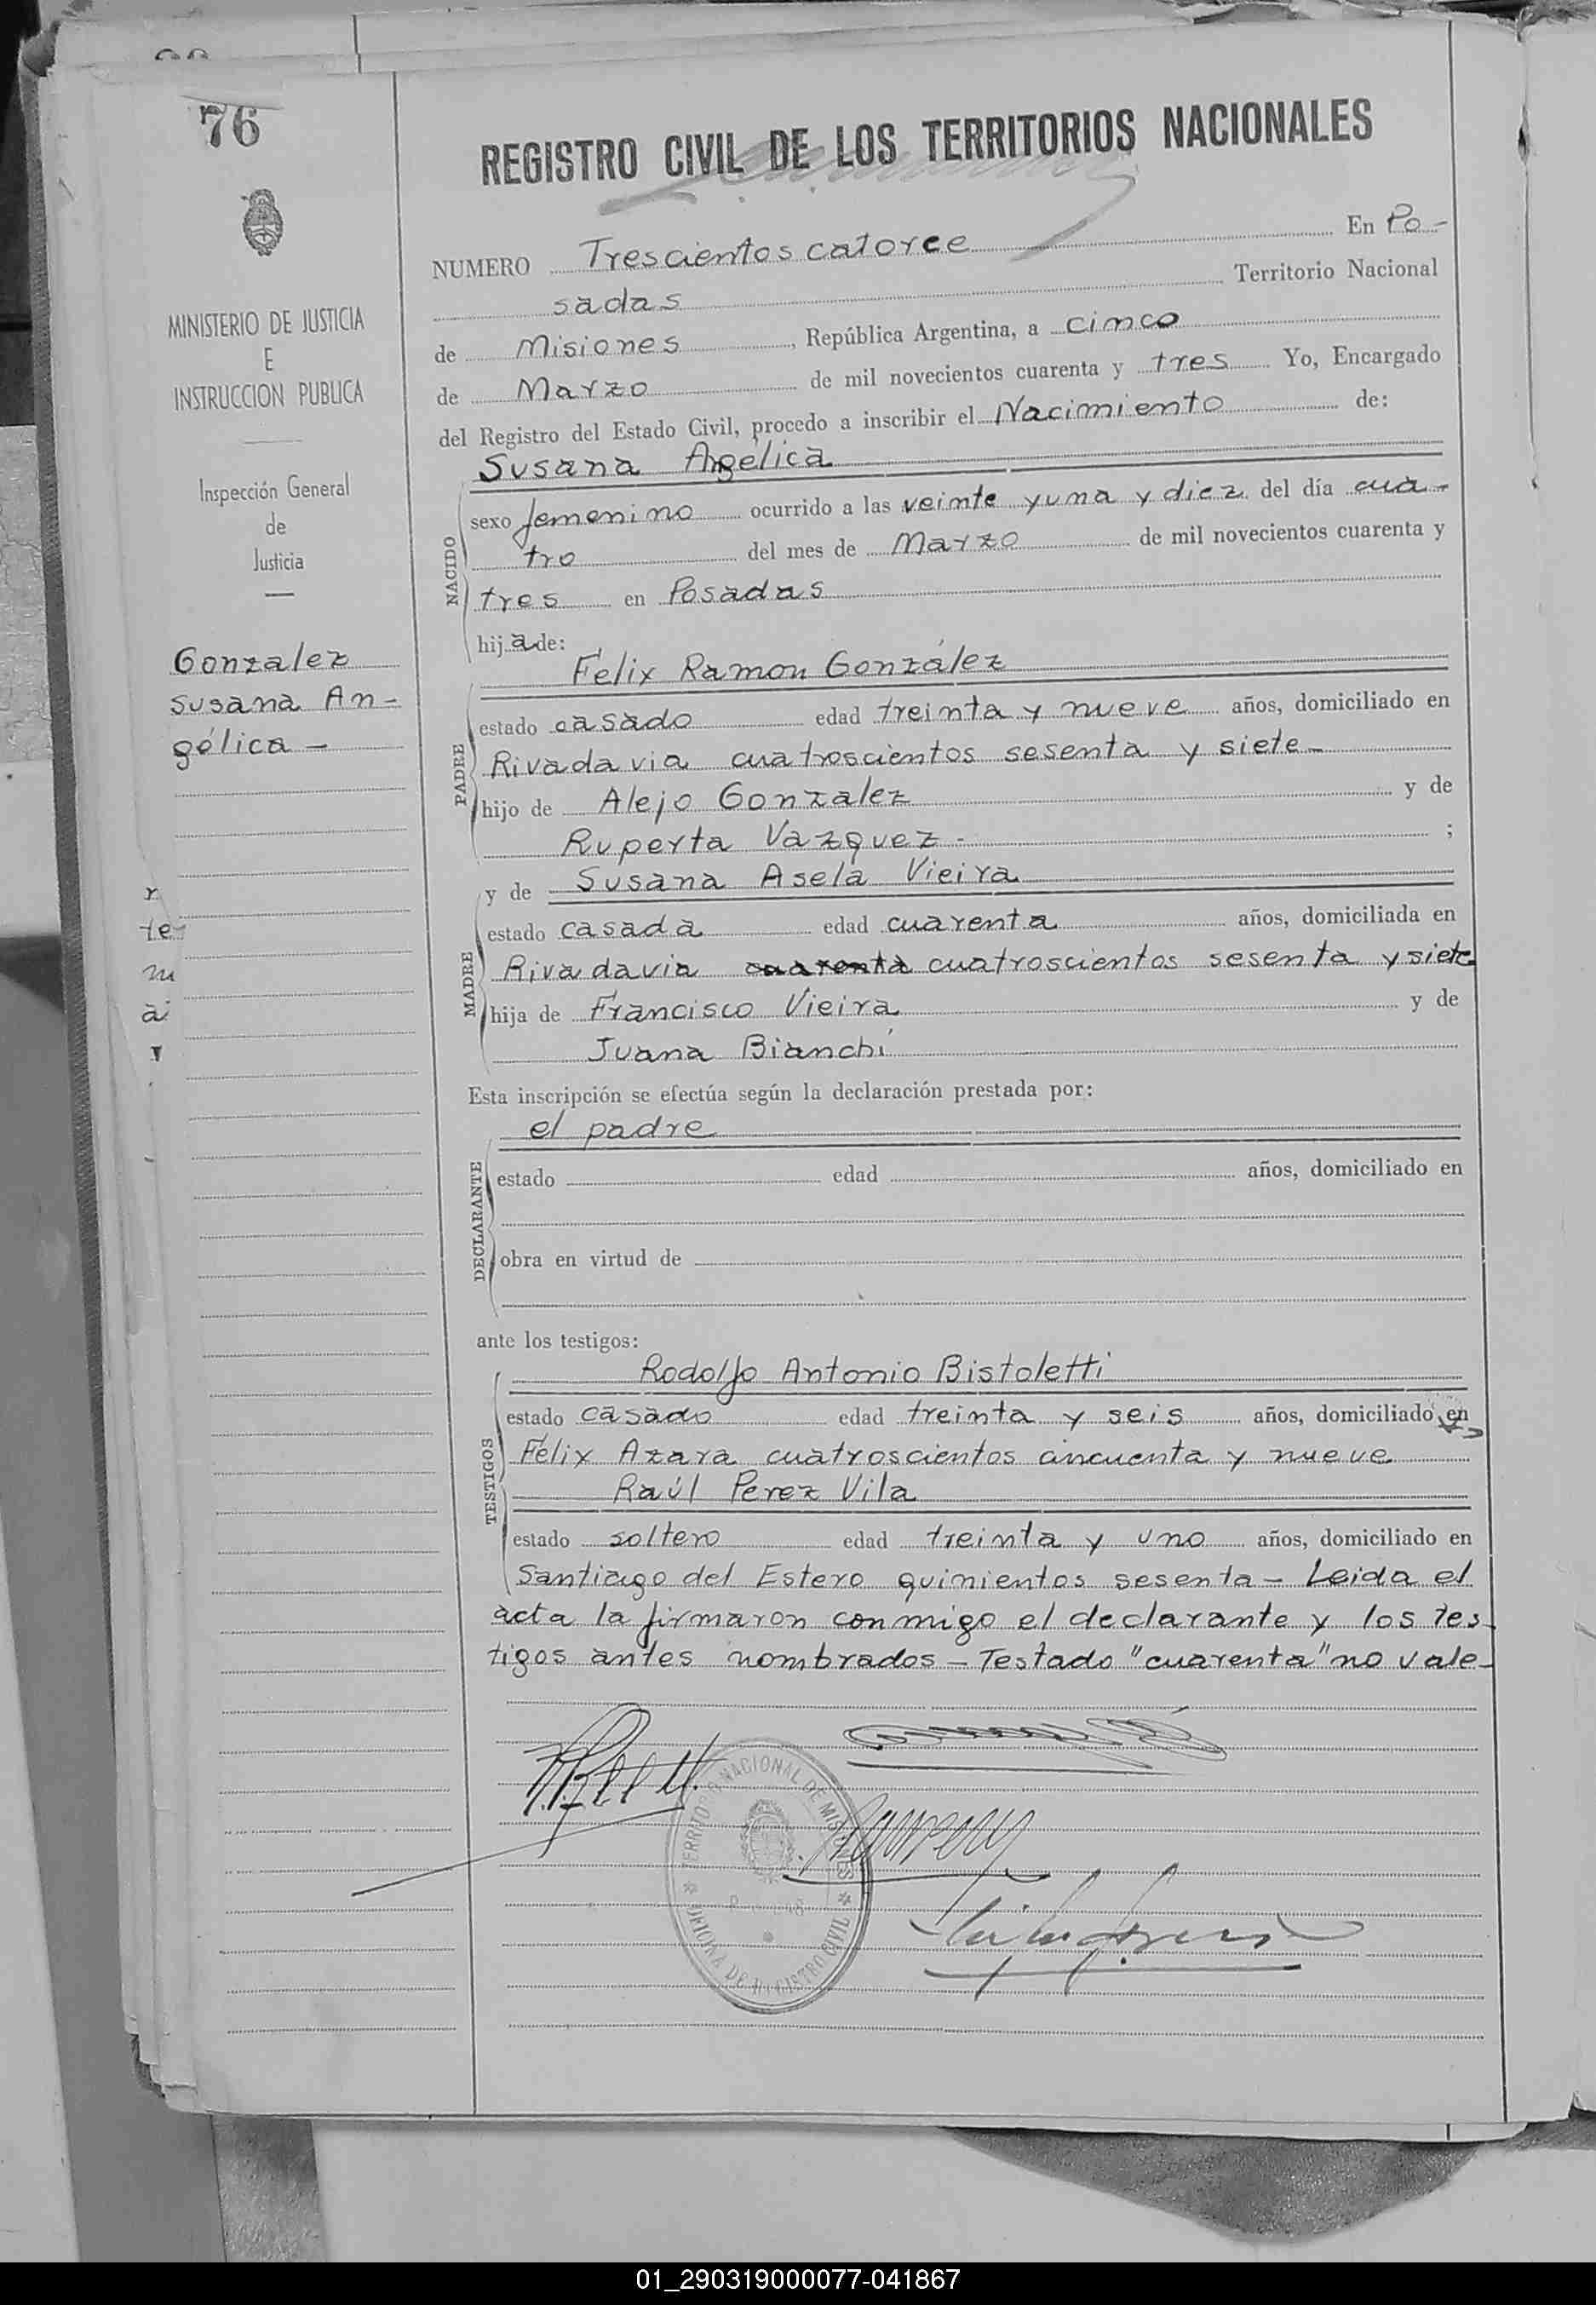 76
REGISTRO CIVIL DE LOS TERRITORIOS NACIONALES
MINISTERIO DE JUSTICIA
E
INSTRUCCION PUBLICA
Inspección General
de
Justicia
Gonzalez
Susana An-
gélica -
r
te-
m
a
NUMERO Trescientos catorce En Po-
sadas Territorio Nacional
de Misiones, República Argentina, a cinco
de Marzo de mil novecientos cuarenta y tres Yo, Encargado
del Registro del Estado Civil, procedo a inscribir el Nacimiento de:
Susana Angélica
NACIDO
sexo femenino ocurrido a las veinte y una y diez del día cua-
tro del mes de Marzo de mil novecientos cuarenta y
tres en Posadas
hija de:
Félix Ramon González
PADRE
estado casado edad treinta y nueve años, domiciliado en
Rivadavia cuatroscientos sesenta y siete-
hijo de Alejo Gonzalez y de
Ruperta Vazquez - ;
y de Susana Asela Vieira
MADRE
estado casada edad cuarenta años, domiciliada en
Rivadavia cuarenta cuatroscientos sesenta y siete
hija de Francisco Vieira y de
Juana Bianchi
Esta inscripción se efectúa según la declaración prestada por:
el padre
DECLARANTE
estado edad años, domiciliado en
obra en virtud de
ante los testigos:
Rodolfo Antonio Bistoletti
TESTIGOS
estado casado edad treinta y seis años, domiciliado en
Félix Azara cuatroscientos cincuenta y nueve
Raúl Perez Vila
estado soltero edad treinta y uno años, domiciliado en
Santiago del Estero quinientos sesenta - Leida el
acta la firmaron conmigo el declarante y los tes-
tigos antes nombrados - Testado "cuarenta" no vale-
TERRITORIO NACIONAL DE MISIONES
OFICINA DE REGISTRO CIVIL
01_290319000077-041867